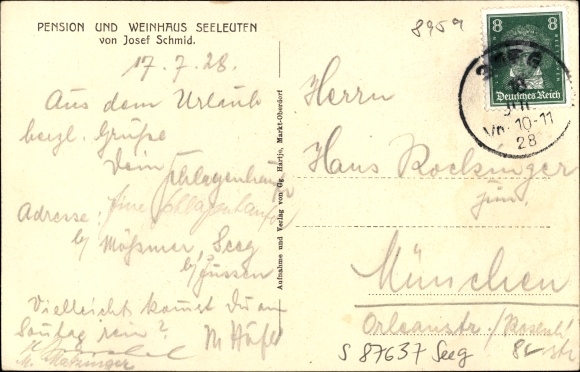 PENSION UND WEINHAUS SEELEUTEN
von Josef Schmid.
17.7.28.
Aus dem Urlaub
herzl. Grüße
Dein Schlagenhauf
Adresse: Schlagenhauf
b/ Mößmer, Seeg
b/ Füssen
Vielleicht kommst Du am
Sonntag rein? M Höfl
M.
Aufnahme und Verlag von Gg. Hartje, Markt-Oberdorf
8959
8 8
Deutsches Reich
SEEG
18
JUL
Vm. 10-11
28
Herrn
Hans Rocksinger
jun.
München
Orleanstr./Rosenh!
str
S 87637 Seeg